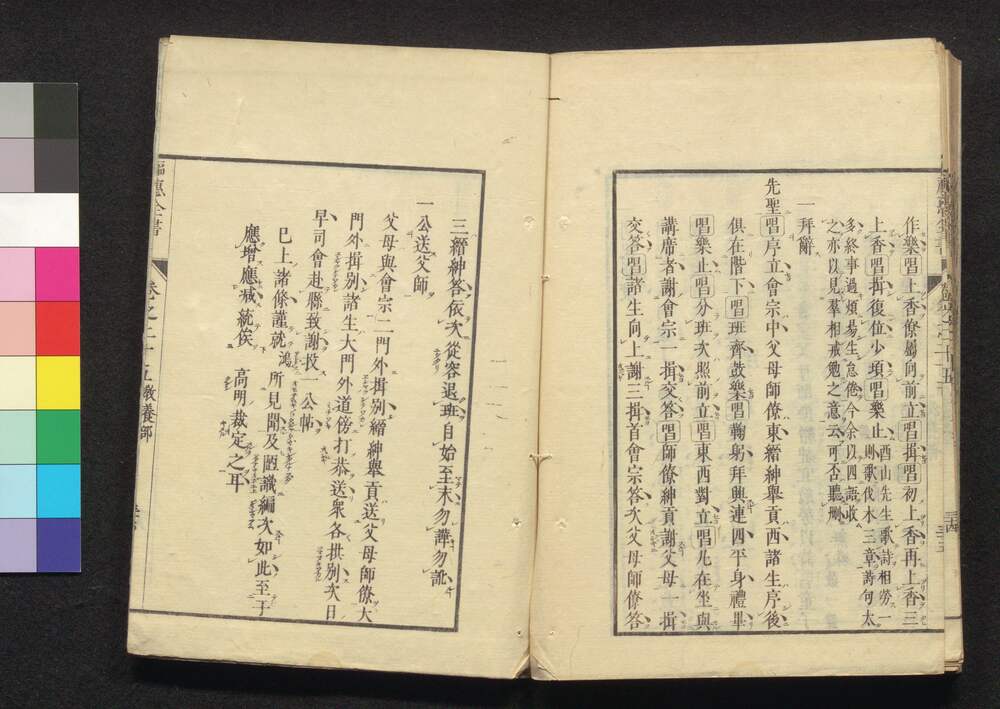 作樂唱上香僚屬向前立唱揖唱初上香再上香三
上香唱揖復位少頃唱樂止酉山先生歌詩相勞一
則歌伐木三章詩句太
多終事過煩易生怠倦今余以四語收
之亦以見羣相戒勉之意云可否聽刪
一拜辭
先聖唱序立會宗中父母師僚東縉紳舉貢西諸生序後
俱在階下唱班齊鼓樂唱鞠躬拜興連四平身禮畢
唱樂止唱分班次照前立唱東西對立唱凡在坐與
講席者謝會宗一揖交答唱師僚紳貢謝父母一揖
交答唱諸生向上謝三揖首會宗答次父母師僚答
三縉紳答依次從容退班自始至末勿譁勿訛
一公送父師
父母與會宗二門外揖別縉紳舉貢送父母師僚大
門外揖別諸生大門外道傍打恭送衆各拱別次日
早司會赴縣致謝投一公帖
已上諸條謹就鴻所見聞及臆識編次如此至于
應增應減統俟
高明裁定之耳
福惠全書
卷之二十五教養部